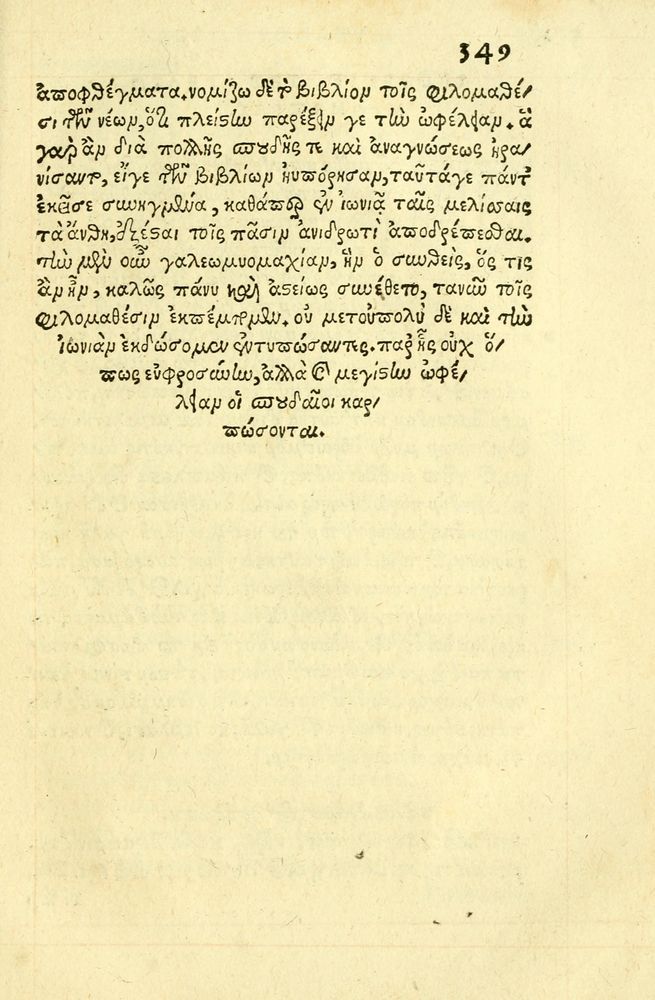 349
ἀποφθέγματα. νομίζω δὲ τὸ βιβλίον τοῖς φιλομαθέ/
σι τῶν νέων, ὅτι πλείστην παρέξειν γε τὴν ὠφέλειαν. ἃ
γὰρ ἂν διὰ πολλῆς σπουδῆς τε καὶ ἀναγνώσεως ἠρα/
νίσαντο, εἴγε τῶν βιβλίων ηὐπόρησαν, ταῦτάγε πάντ
ἐκεῖσε συνηγμένα, καθάπερ ἐν ἰωνιᾷ ταῖς μελίσσαις
τὰ ἄνθη, ἔξεσται τοῖς πᾶσιν ἀνιδρωτὶ ἀποδρέπεσθαι.
τὴν μὲν οὖν γαλεωμυομαχίαν, ἣν ὁ συνθεὶς, ὅς τις
ἂν ἦν, καλῶς πάνυ καὶ ἀστείως συνέθετο, τανῦν τοῖς
φιλομαθέσιν ἐκπέμπομεν. οὐ μετοὐπολὺ δὲ καὶ τὴν
ἰωνιὰν ἐκδώσομεν ἐντυπώσαντες. παρ ἧς οὐχ ὅ/
πως εὐφροσύνην, ἀλλὰ καὶ μεγίστην ὠφέ/
λειαν οἱ σπουδαῖοι καρ/
πώσονται.